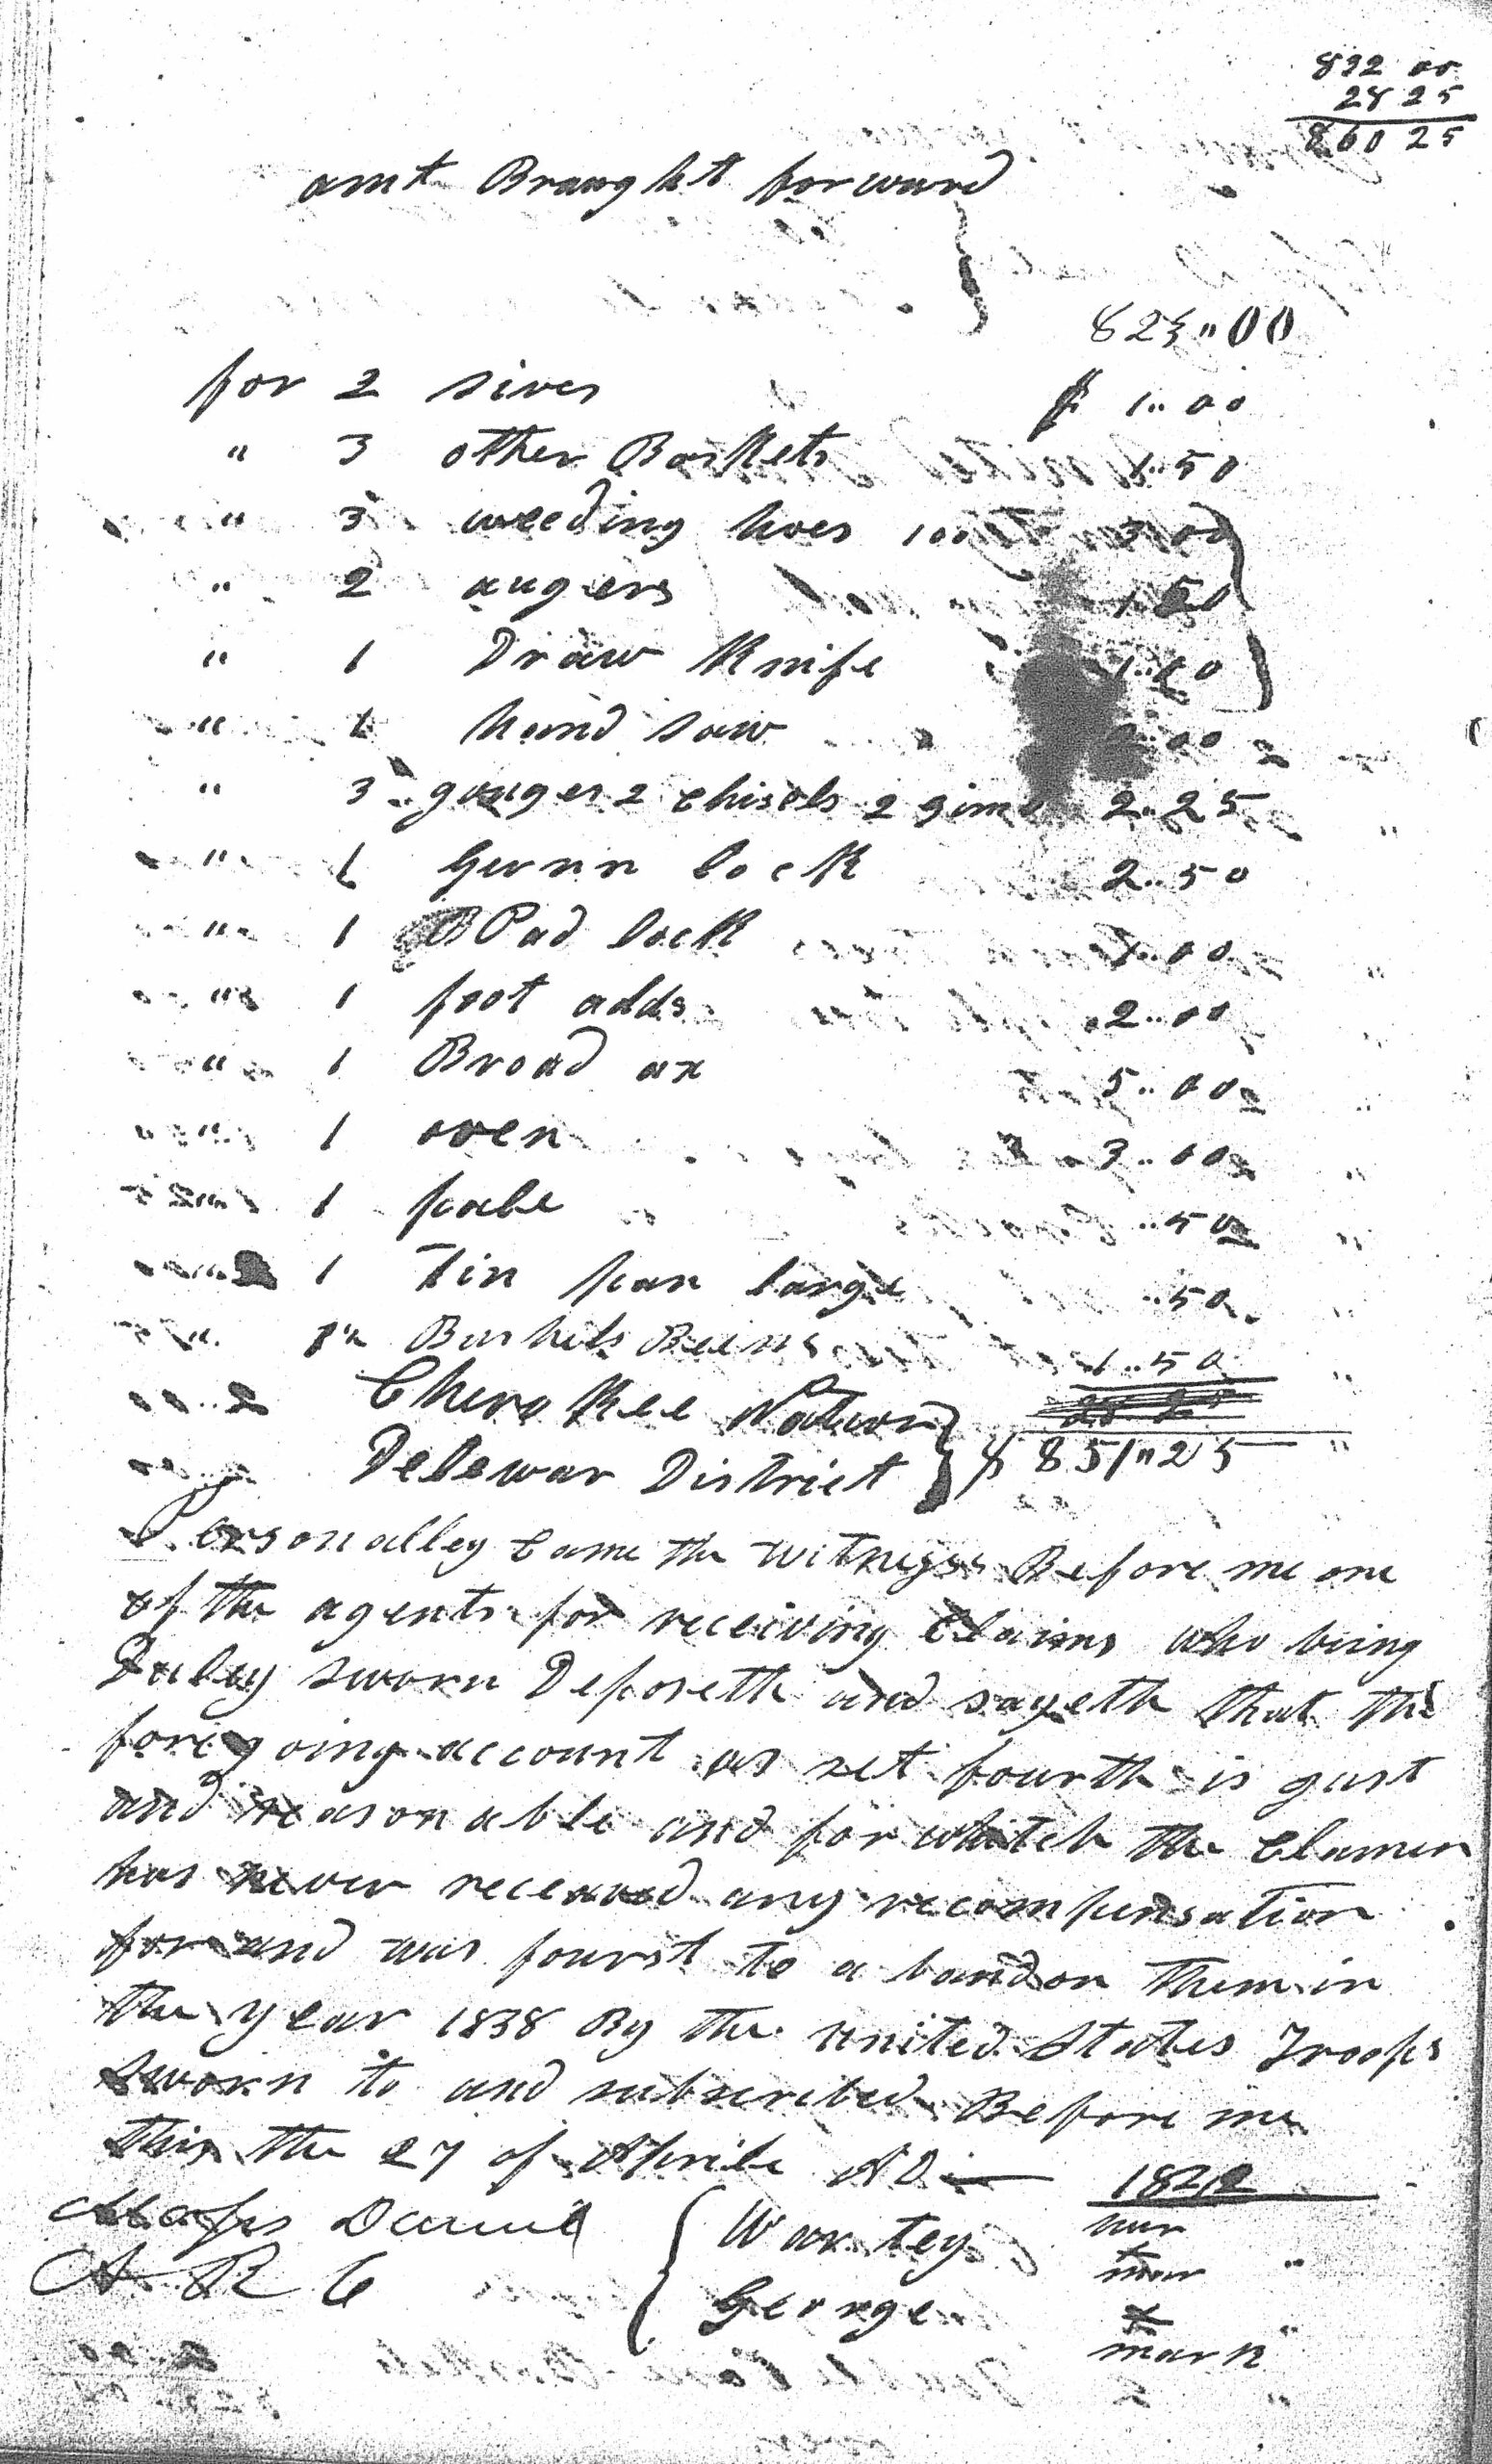 832 00
28 25
860 25
amt Braught forward
823 " 00
for 2 sives $ 1..00
" 3 other Baskets 1..50
" 3 weeding hoes 100 3 00
" 2 augers 1 50
" 1 Draw Knife 1..00
" 1 hand saw 00
" 3 gouges 2 chisels 2 gim 2..25
" 1 Gunn lock 2..50
" 1 Pad lock 1..00
" 1 foot adds 2..00
" 1 Broad ax 5..00
" 1 oven 3..00
1 pale ..50
1 Tin pan large ..50
" Bushels Beens 1..50
Cherokee Nation
Delewar District } $ 851"25
Personalley Came the witness Before me one
of the agents for receiving Claims who being
Duley sworn Deposeth and sayeth that the
foregoing account as set fourth is gust
and reasonable and for whitch the Clamen
has never received any recompensation
for and was fourst to abandon them in
the year 1838 By the united States Troops
Sworn to and subscribed Before me
this the 27 of Aprile AD 1842
Daniel { War tey her
A R C George x
mark